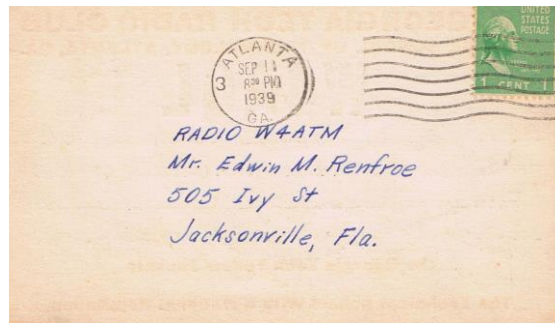 UNITED
STATES
POSTAGE
1 CENT 1
ATLANTA
SEP 11
8 30 PM
3
1939
GA.
RADIO W4ATM
Mr. Edwin M. Renfroe
505 Ivy St
Jacksonville, Fla.